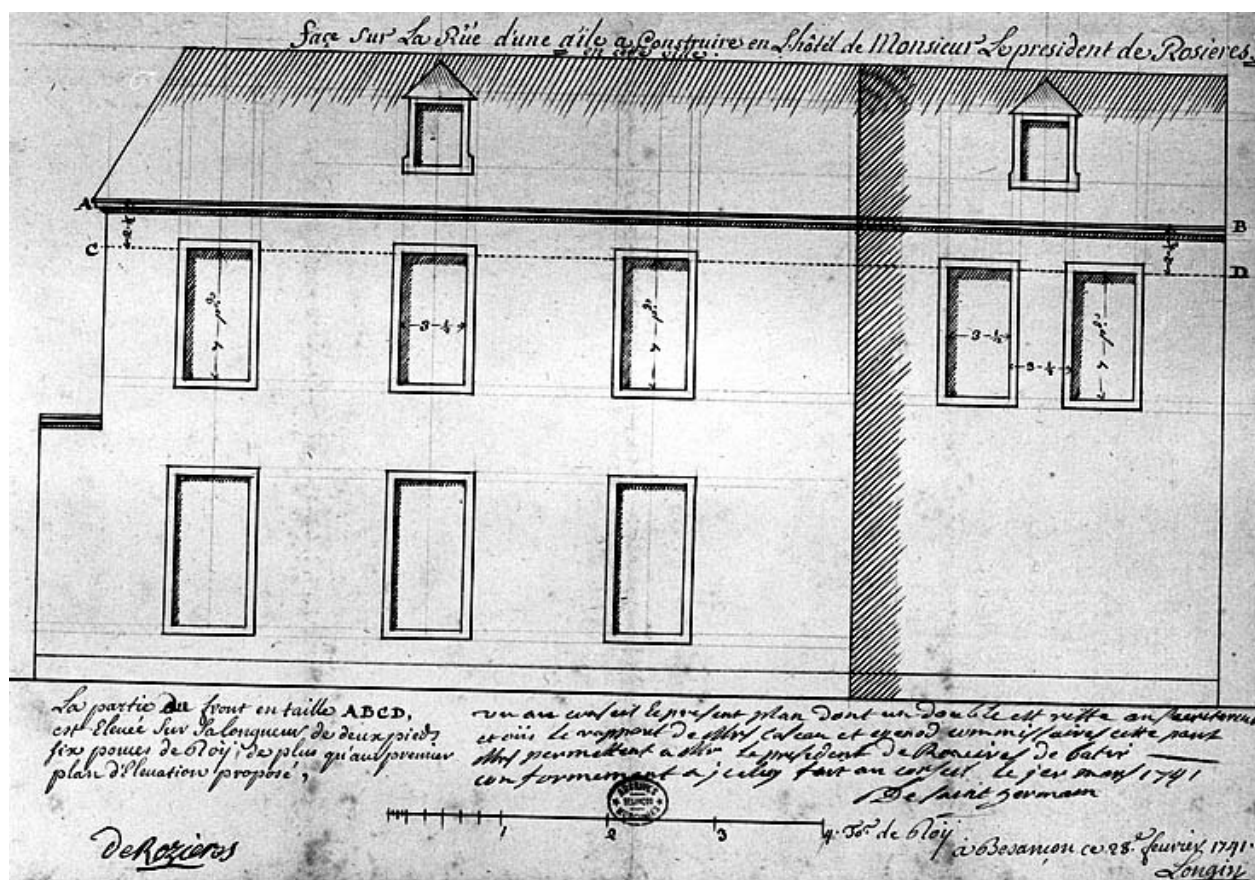 façe sur La Rüe d'une aîle a Construire en L'hôtel de Monsieur Le president de Rosieres
A
B
2-½
2-½
C
D
7 - pds
3-½
7 - pds
3-½
3-½
7 - pds
La partie Du front en taille ABCD,
est Eleuée Sur Sa longueur de deux pieds
six pouces de Roy, de plus qu'au premier
plan d'Eleuation proposé,
vu au conseil le present plan dont un double est resté au secretariat
et oüis le rapport de Mrs Caseau et commissaires cette part
Mrs permettent a Mr Le president de Rozieres de batir
conformement a jceluy fait au conseil le jer mars 1741
De Saint Germain
ARCHIVES
BESANÇON
1
2
3
4. Tos. de Roy
DeRozieres
à Besançon ce 28e feurier 1741.
Longin